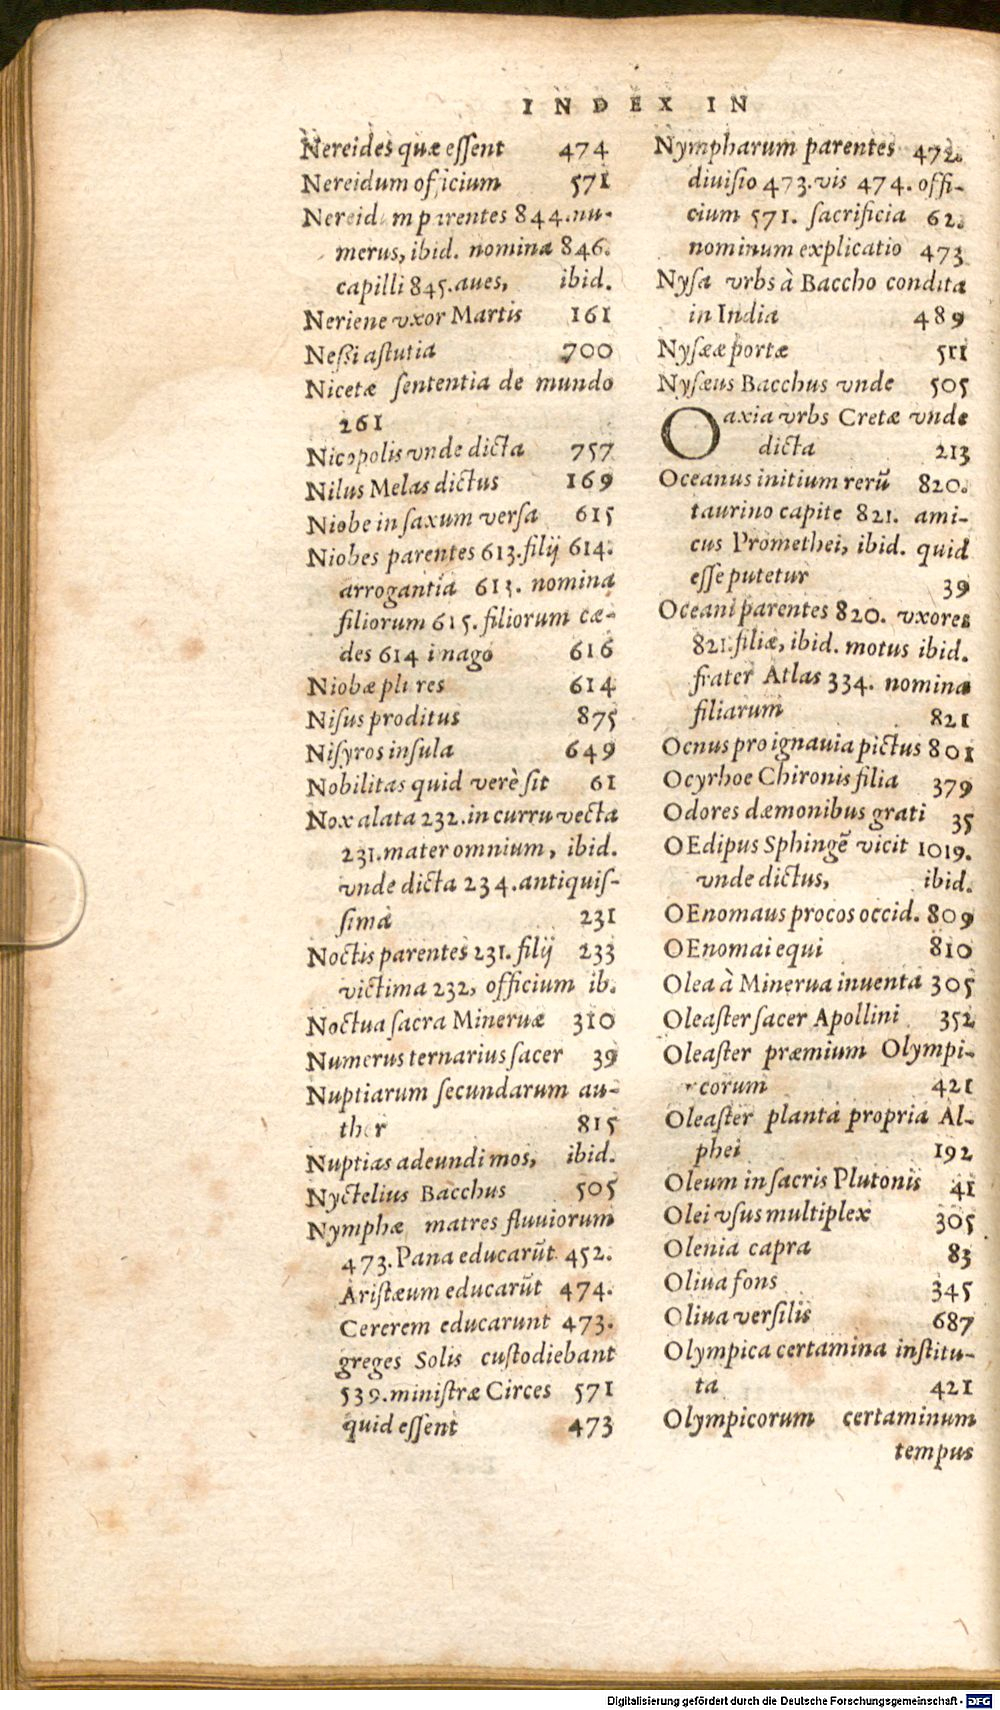 INDEX IN
Nereides quæ eſſent 474
Nereidum officium 571
Nereidum parentes 844. nu-
merus, ibid. nomina 846.
capilli 845. aues, ibid.
Neriene vxor Martis 161
Neßi aſtutia 700
Nicetæ ſententia de mundo
261
Nicopolis vnde dicta 757
Nilus Melas dictus 169
Niobe in ſaxum verſa 615
Niobes parentes 613. filij 614.
arrogantia 613. nomina
filiorum 615. filiorum cæ-
des 614 imago 616
Niobæ plures 614
Niſus proditus 875
Niſyros inſula 649
Nobilitas quid verè ſit 61
Nox alata 232. in curru vecta
231. mater omnium, ibid.
vnde dicta 234. antiquiſ-
ſima 231
Noctis parentes 231. filij 233
victima 232, officium ib.
Noctua ſacra Mineruæ 310
Numerus ternarius ſacer 39
Nuptiarum ſecundarum au-
thor 815
Nuptias adeundi mos, ibid.
Nyctelius Bacchus 505
Nymphæ matres fluuiorum
473. Pana educarūt 452.
Ariſtæum educarūt 474.
Cererem educarunt 473.
greges Solis cuſtodiebant
539. miniſtræ Circes 571
quid eſſent 473
Nympharum parentes 472.
diuiſio 473. vis 474. offi-
cium 571. ſacrificia 62.
nominum explicatio 473
Nyſa vrbs à Baccho condita
in India 489
Nyſææ portæ 511
Nyſæus Bacchus vnde 505
Oaxia vrbs Cretæ vnde
dicta 213
Oceanus initium rerū 820.
taurino capite 821. ami-
cus Promethei, ibid. quid
eſſe putetur 39
Oceani parentes 820. vxores
821. filiæ, ibid. motus ibid.
frater Atlas 334. nomina
filiarum 821
Ocnus pro ignauia pictus 801
Ocyrhoe Chironis filia 379
Odores dæmonibus grati 35
OEdipus Sphingē vicit 1019.
vnde dictus, ibid.
OEnomaus procos occid. 809
OEnomai equi 810
Olea à Minerua inuenta 305
Oleaſter ſacer Apollini 352
Oleaſter præmium Olympi-
corum 421
Oleaſter planta propria Al-
phei 192
Oleum in ſacris Plutonis 41
Olei vſus multiplex 305
Olenia capra 83
Oliua fons 345
Oliua verſilis 687
Olympica certamina inſtitu-
ta 421
Olympicorum certaminum
tempus
Digitalisierung gefördert durch die Deutsche Forschungsgemeinschaft - DFG